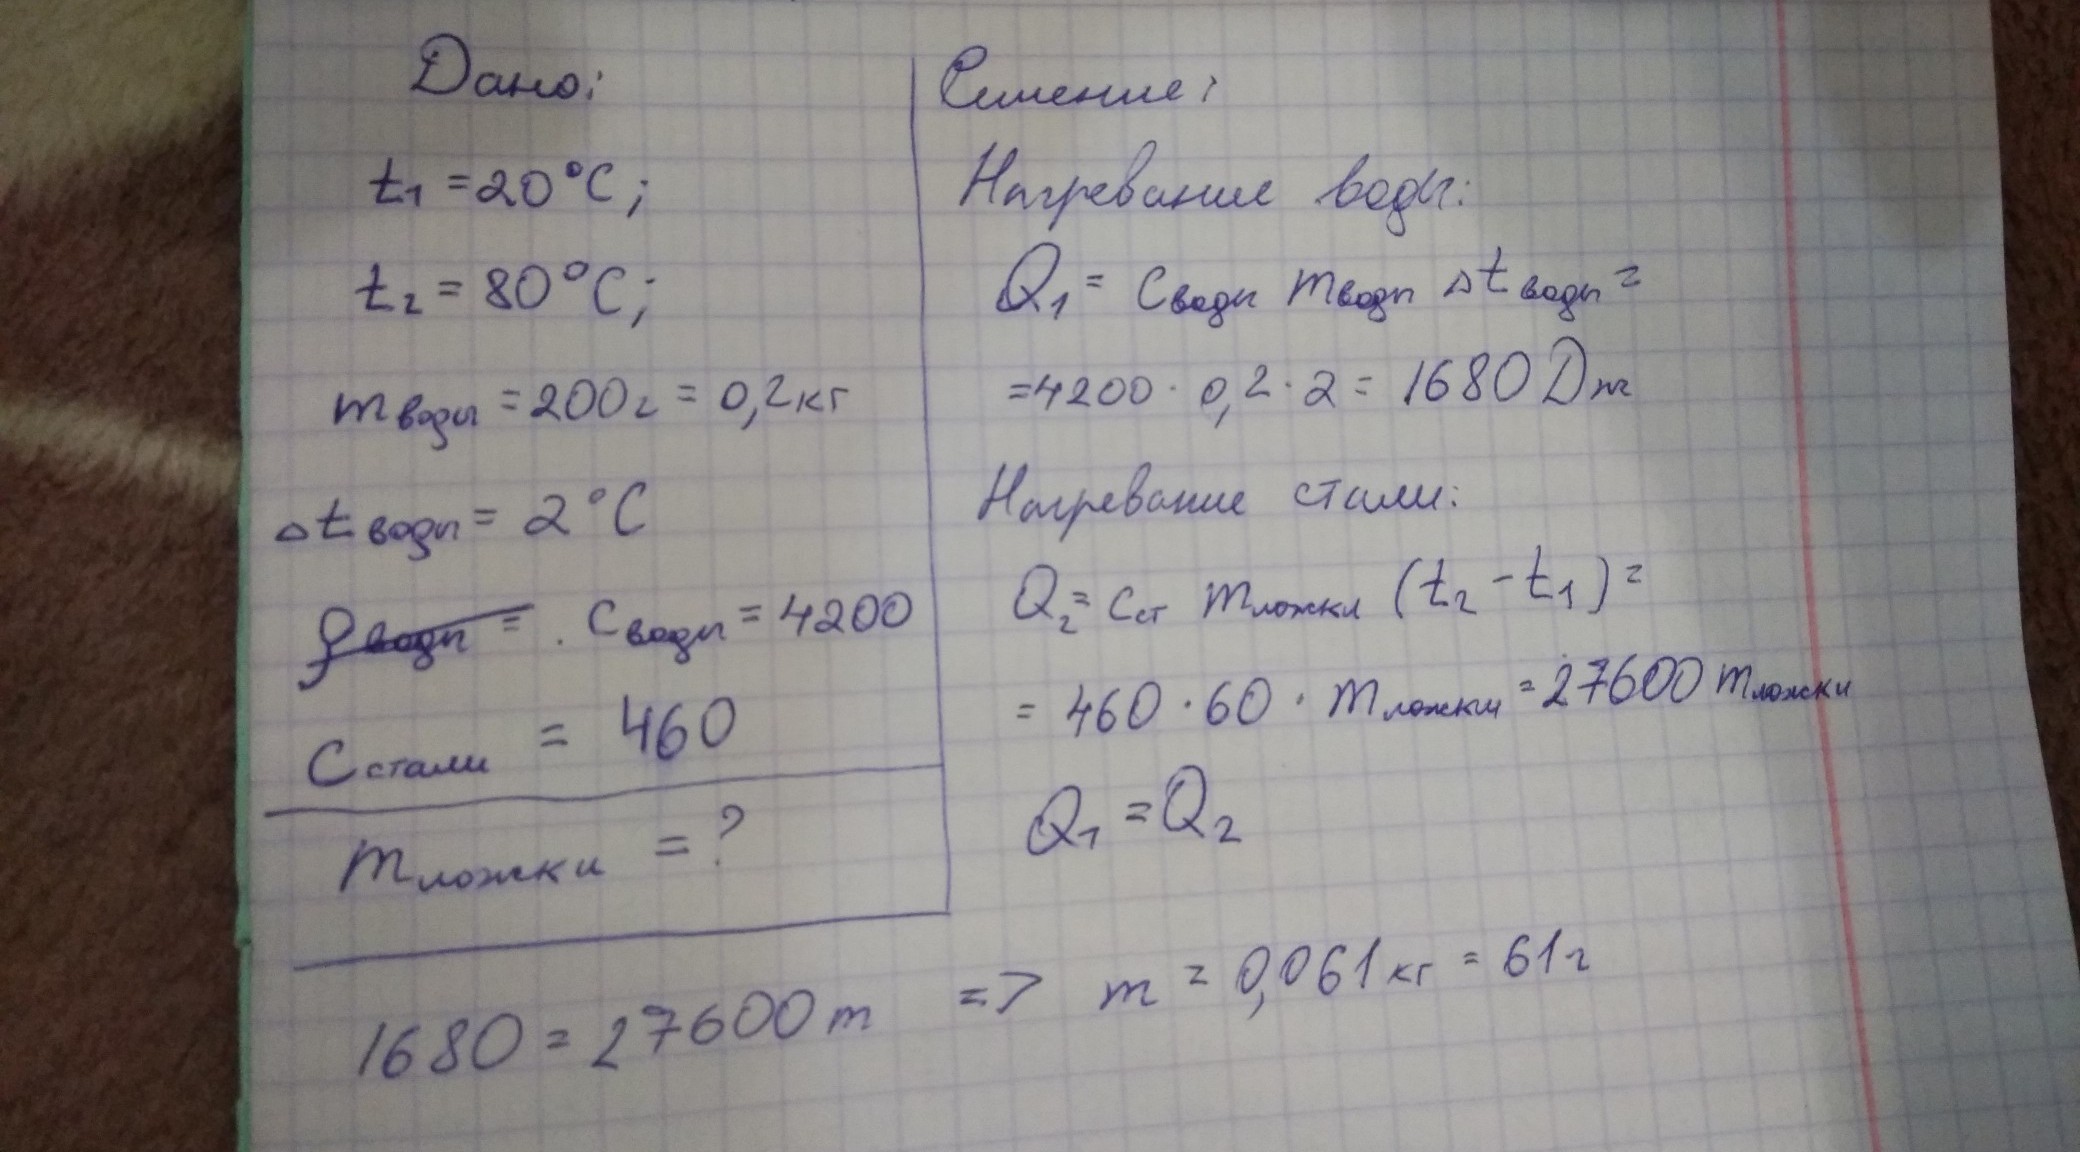 Дано:
t₁ = 20°C;
t₂ = 80°C;
m воды = 200г = 0,2кг
Δt воды = 2°C
ρ воды = . C воды = 4200
C стали = 460
m ложки = ?
Решение:
Нагревание воды:
Q₁ = C воды m воды Δt воды =
= 4200 · 0,2 · 2 = 1680 Дж
Нагревание стали:
Q₂ = C ст m ложки (t₂ - t₁) =
= 460 · 60 · m ложки = 27600 m ложки
Q₁ = Q₂
1680 = 27600 m => m = 0,061 кг = 61 г